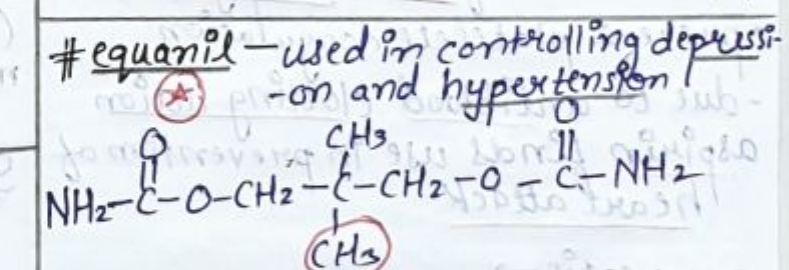 # equanil – used in controlling depressi-
-on and hypertension
O CH3 O
NH2-C-O-CH2-C-CH2-O-C-NH2
CH3